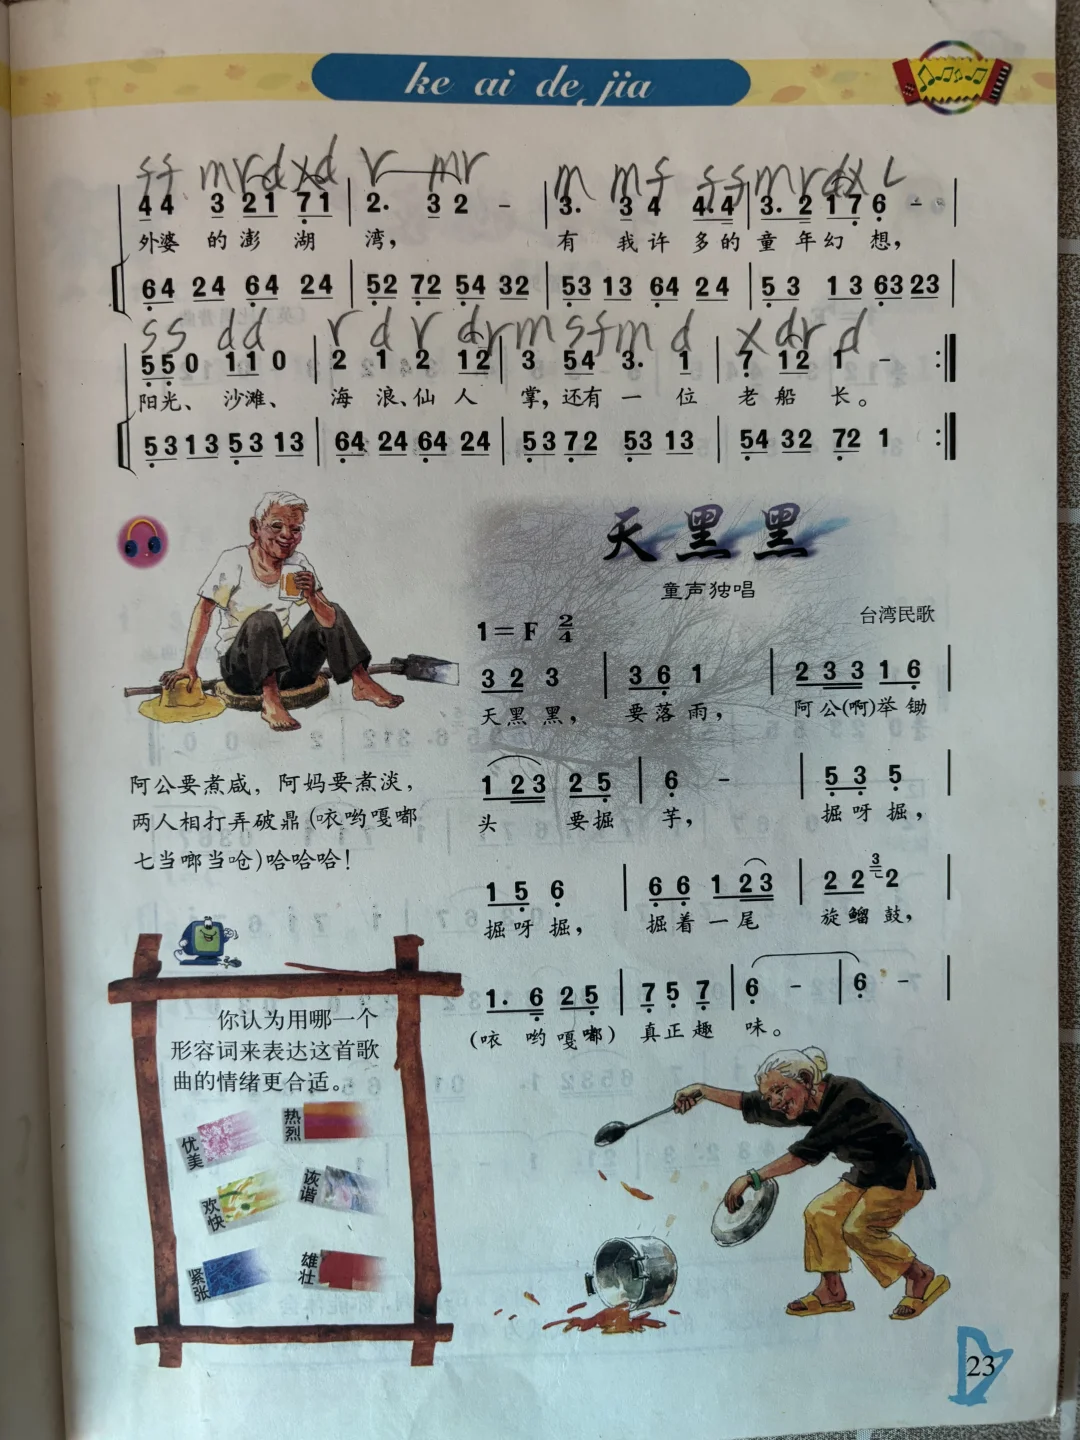 ke ai de jia
ff mrpxp r mr m mf ffmrpx
4 4 3 2 1 7 1 | 2. 3 2 - | 3. 3 4 4. 4 | 3. 2 1 7 6 - |
外婆 的 澎 湖 湾， 有 我 许 多 的 童 年 幻 想，
6 4 2 4 6 4 2 4 | 5 2 7 2 5 4 3 2 | 5 3 1 3 6 4 2 4 | 5 3 1 3 6 3 2 3 |
s s p p r p r pr m sf m p x pr p
5 5 0 1 1 0 | 2 1 2 1 2 | 3 5 4 3. 1 | 7 1 2 1 - :||
阳光、 沙滩、 海 浪、仙 人 掌，还有 一 位 老 船 长。
5 3 1 3 5 3 1 3 | 6 4 2 4 6 4 2 4 | 5 3 7 2 5 3 1 3 | 5 4 3 2 7 2 1 :||
天黑黑
童声独唱
台湾民歌
1= F 2/4
3 2 3 | 3 6 1 | 2 3 3 1 6 |
天黑 黑， 要落 雨， 阿 公(啊)举 锄
1 2 3 2 5 | 6 - | 5 3 5 |
头 要掘 芋， 掘 呀 掘，
1 5 6 | 6 6 1 2 3 | 2 2 3 2 |
掘 呀 掘， 掘 着 一 尾 旋 鰡 鼓，
1. 6 2 5 | 7 5 7 | 6 - | 6 - |
(咴 哟 嘎嘟) 真正 趣 味。
阿公要煮咸，阿妈要煮淡，
两人相打弄破鼎(咴哟嘎嘟
七当啷当呛)哈哈哈！
你认为用哪一个
形容词来表达这首歌
曲的情绪更合适。
优美
热烈
欢快
诙谐
紧张
雄壮
23